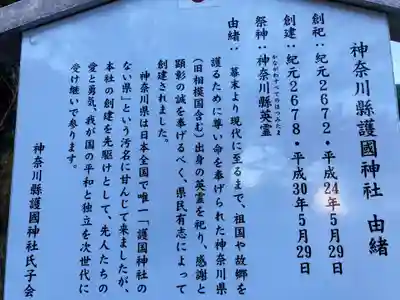 神奈川縣護國神社 由緒
創祀：紀元2672・平成24年5月29日
創建：紀元2678・平成30年5月29日
祭神：神奈川縣英霊
かながわすべてのはつみたま
由緒：幕末より現代に至るまで、祖国や故郷を
護るために尊い命を奉げられた神奈川県
（旧相模国含む）出身の英霊を祀り、感謝と
顕彰の誠を奉げるべく、県民有志によって
創建されました。
神奈川県は日本全国で唯一「護国神社の
ない県」という汚名に甘んじて来ましたが、
本社の創建を先駆けとして、先人たちの
愛と勇気、我が国の平和と独立を次世代に
受け継いで参ります。
神奈川縣護國神社氏子会